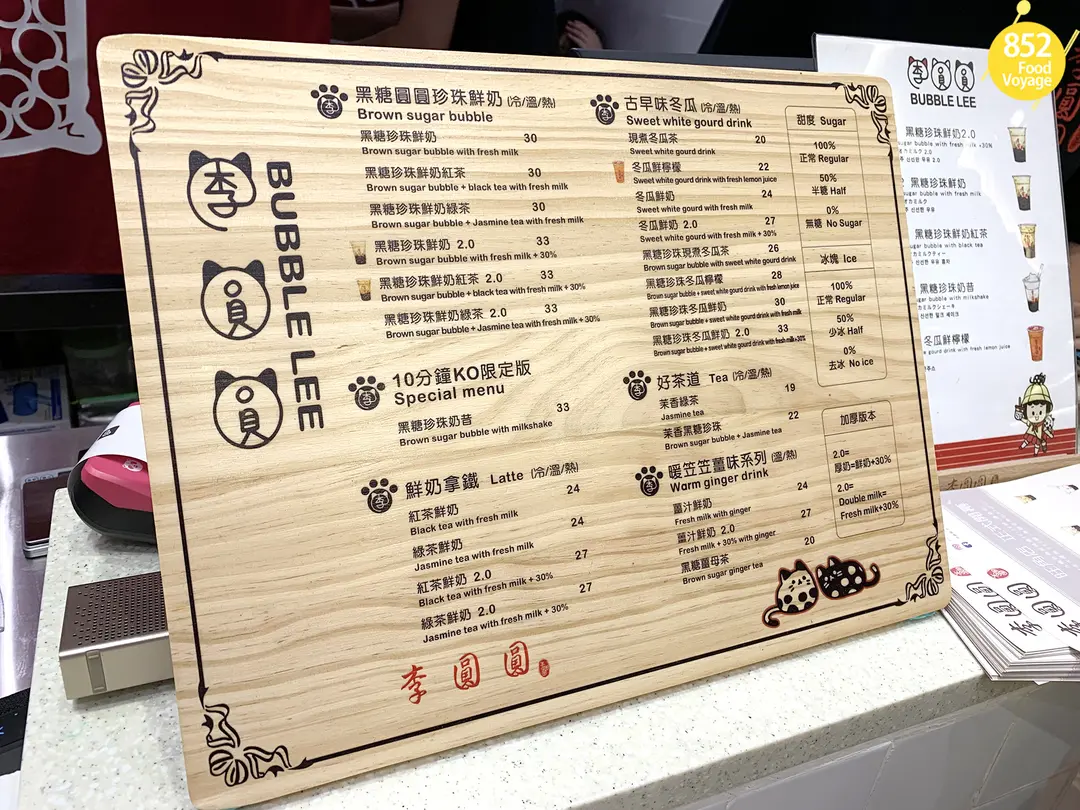 852
Food
Voyage
李
員
員
BUBBLE LEE
黑糖圓圓珍珠鮮奶 (冷/溫/熱)
Brown sugar bubble
黑糖珍珠鮮奶 30
Brown sugar bubble with fresh milk
黑糖珍珠鮮奶紅茶 30
Brown sugar bubble + black tea with fresh milk
黑糖珍珠鮮奶綠茶 30
Brown sugar bubble + Jasmine tea with fresh milk
黑糖珍珠鮮奶 2.0 33
Brown sugar bubble with fresh milk + 30%
黑糖珍珠鮮奶紅茶 2.0 33
Brown sugar bubble + black tea with fresh milk + 30%
黑糖珍珠鮮奶綠茶 2.0 33
Brown sugar bubble + Jasmine tea with fresh milk + 30%
10分鐘KO限定版
Special menu
黑糖珍珠奶昔 33
Brown sugar bubble with milkshake
鮮奶拿鐵 Latte (冷/溫/熱)
紅茶鮮奶 24
Black tea with fresh milk
綠茶鮮奶 24
Jasmine tea with fresh milk
紅茶鮮奶 2.0 27
Black tea with fresh milk + 30%
綠茶鮮奶 2.0 27
Jasmine tea with fresh milk + 30%
李圓圓
古早味冬瓜 (冷/溫/熱)
Sweet white gourd drink
現煮冬瓜茶 20
Sweet white gourd drink
冬瓜鮮檸檬 22
Sweet white gourd drink with fresh lemon juice
冬瓜鮮奶 24
Sweet white gourd with fresh milk
冬瓜鮮奶 2.0 27
Sweet white gourd with fresh milk + 30%
黑糖珍珠現煮冬瓜茶 26
Brown sugar bubble with sweet white gourd drink
黑糖珍珠冬瓜檸檬 28
Brown sugar bubble + sweet white gourd drink with fresh lemon juice
黑糖珍珠冬瓜鮮奶 30
Brown sugar bubble + sweet white gourd drink with fresh milk
黑糖珍珠冬瓜鮮奶 2.0 33
Brown sugar bubble + sweet white gourd drink with fresh milk+30%
好茶道 Tea (冷/溫/熱)
茉香綠茶 19
Jasmine tea
茉香黑糖珍珠 22
Brown sugar bubble + Jasmine tea
暖笠笠薑味系列 (溫/熱)
Warm ginger drink
薑汁鮮奶 24
Fresh milk with ginger
薑汁鮮奶 2.0 27
Fresh milk + 30% with ginger
黑糖薑母茶 20
Brown sugar ginger tea
甜度 Sugar
100%
正常 Regular
50%
半糖 Half
0%
無糖 No Sugar
冰塊 Ice
100%
正常 Regular
50%
少冰 Half
0%
去冰 No ice
加厚版本
2.0=
厚奶=鮮奶+30%
2.0=
Double milk=
Fresh milk+30%
李員員
BUBBLE LEE
黑糖珍珠鮮奶2.0
sugar bubble with fresh milk +30%
黑糖珍珠鮮奶
sugar bubble with fresh milk
黑糖珍珠鮮奶紅茶
sugar bubble with black tea
黑糖珍珠奶昔
sugar bubble with milkshake
冬瓜鮮檸檬
gourd drink with fresh lemon juice